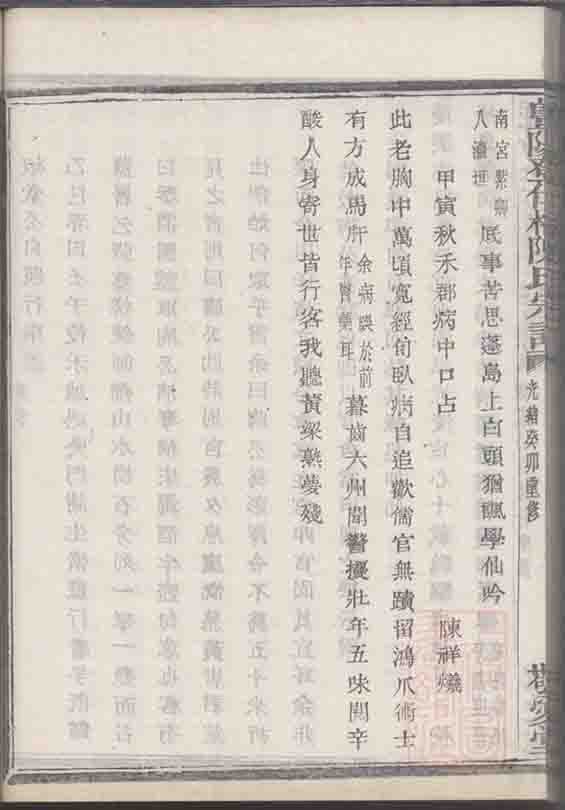 陳氏宗譜 光緒癸卯重修
南宮紫卿
底事苦思蓬島上白頭猶讌學仙吟
甲寅秋禾郡病中口占 陳祥爔
此老胸中萬頃寬經旬臥病自追歡儒官無蹟留鴻爪術士
有方成馬肝余病誤於前年醫藥耳暮齒六州聞警擾壯年五味閱辛
酸人身寄世皆行客我聽黃粱熟夢殘